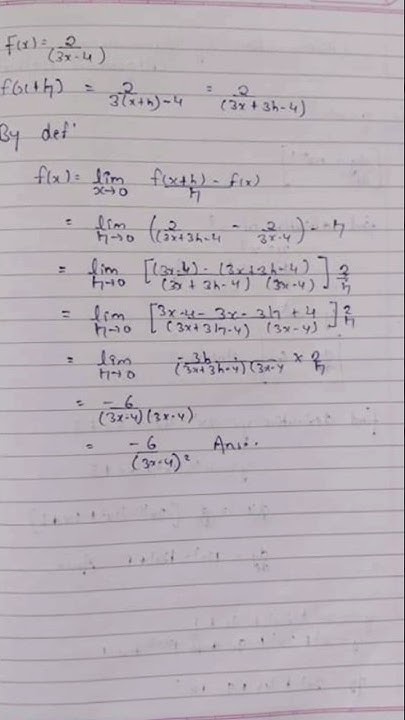 f(x) = 2/(3x-4)
f(x+h) = 2/3(x+h)-4 = 2/(3x+3h-4)
By def'
f(x) = lim x→0 f(x+h) - f(x)/h
= lim h→0 (2/(3x+3h-4 - 2/3x-4) - h
= lim h→0 [(3x-4) - (3x+3h-4)/(3x+3h-4) (3x-4)] 2/h
= lim h→0 [3x-4-3x-3h+4/(3x+3h-4) (3x-4)] 2/h
= lim h→0 -3h/(3x+3h-4)(3x-4 × 2/h
= -6/(3x-4)(3x-4)
= -6/(3x-4)² Ans:.